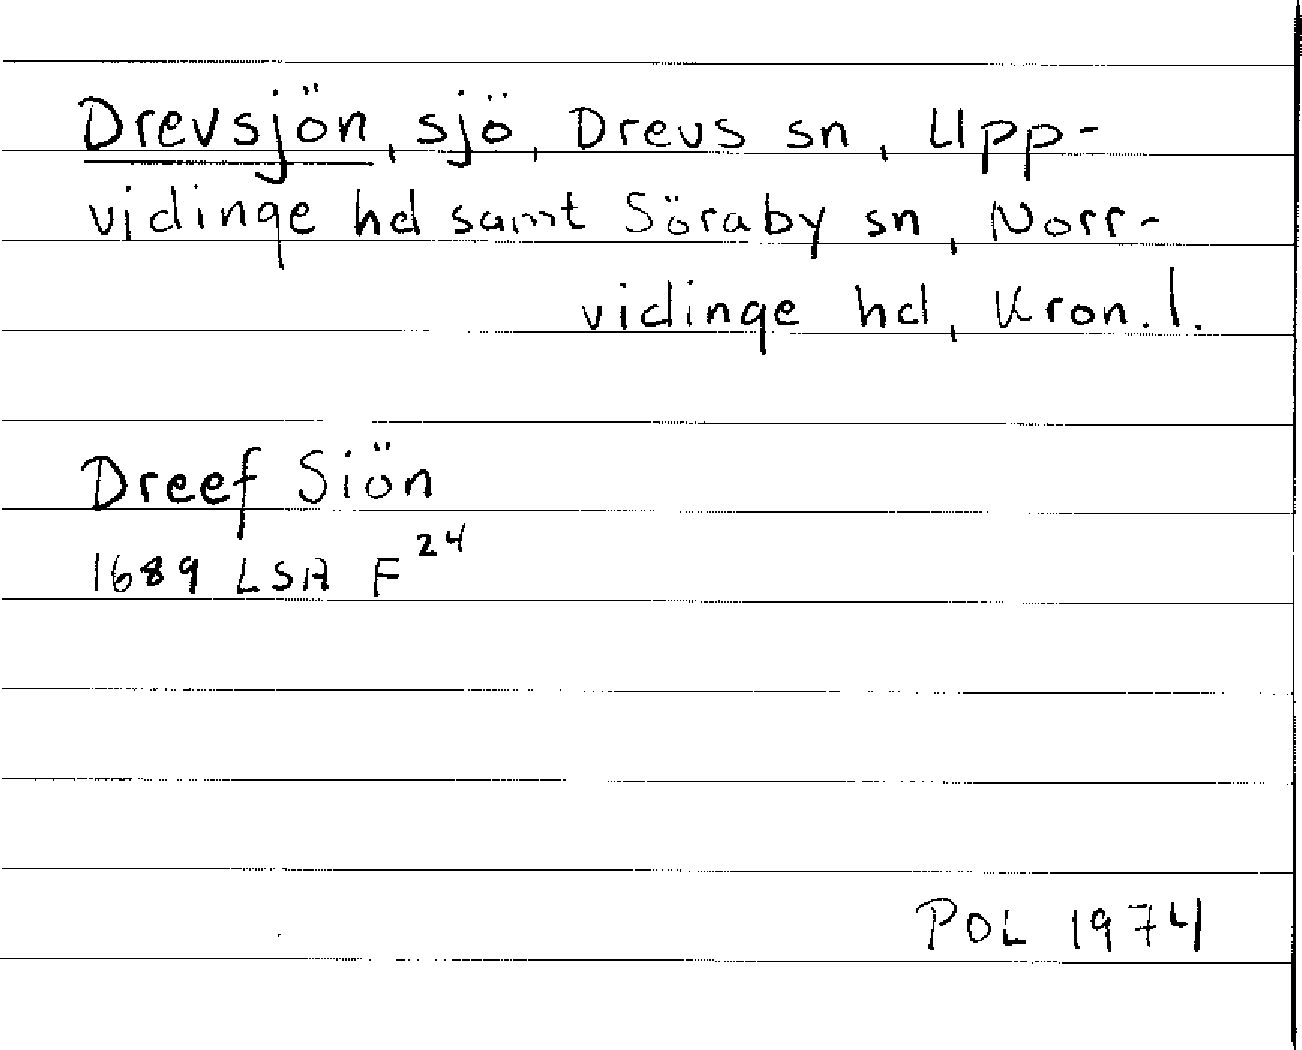 Drevsjön, sjö, Drevs sn, Upp-
vidinge hd samt Söraby sn, Norr-
vidinge hd, Kron. l.
Dreef Siön
1689 LSA F 24
POL 1974